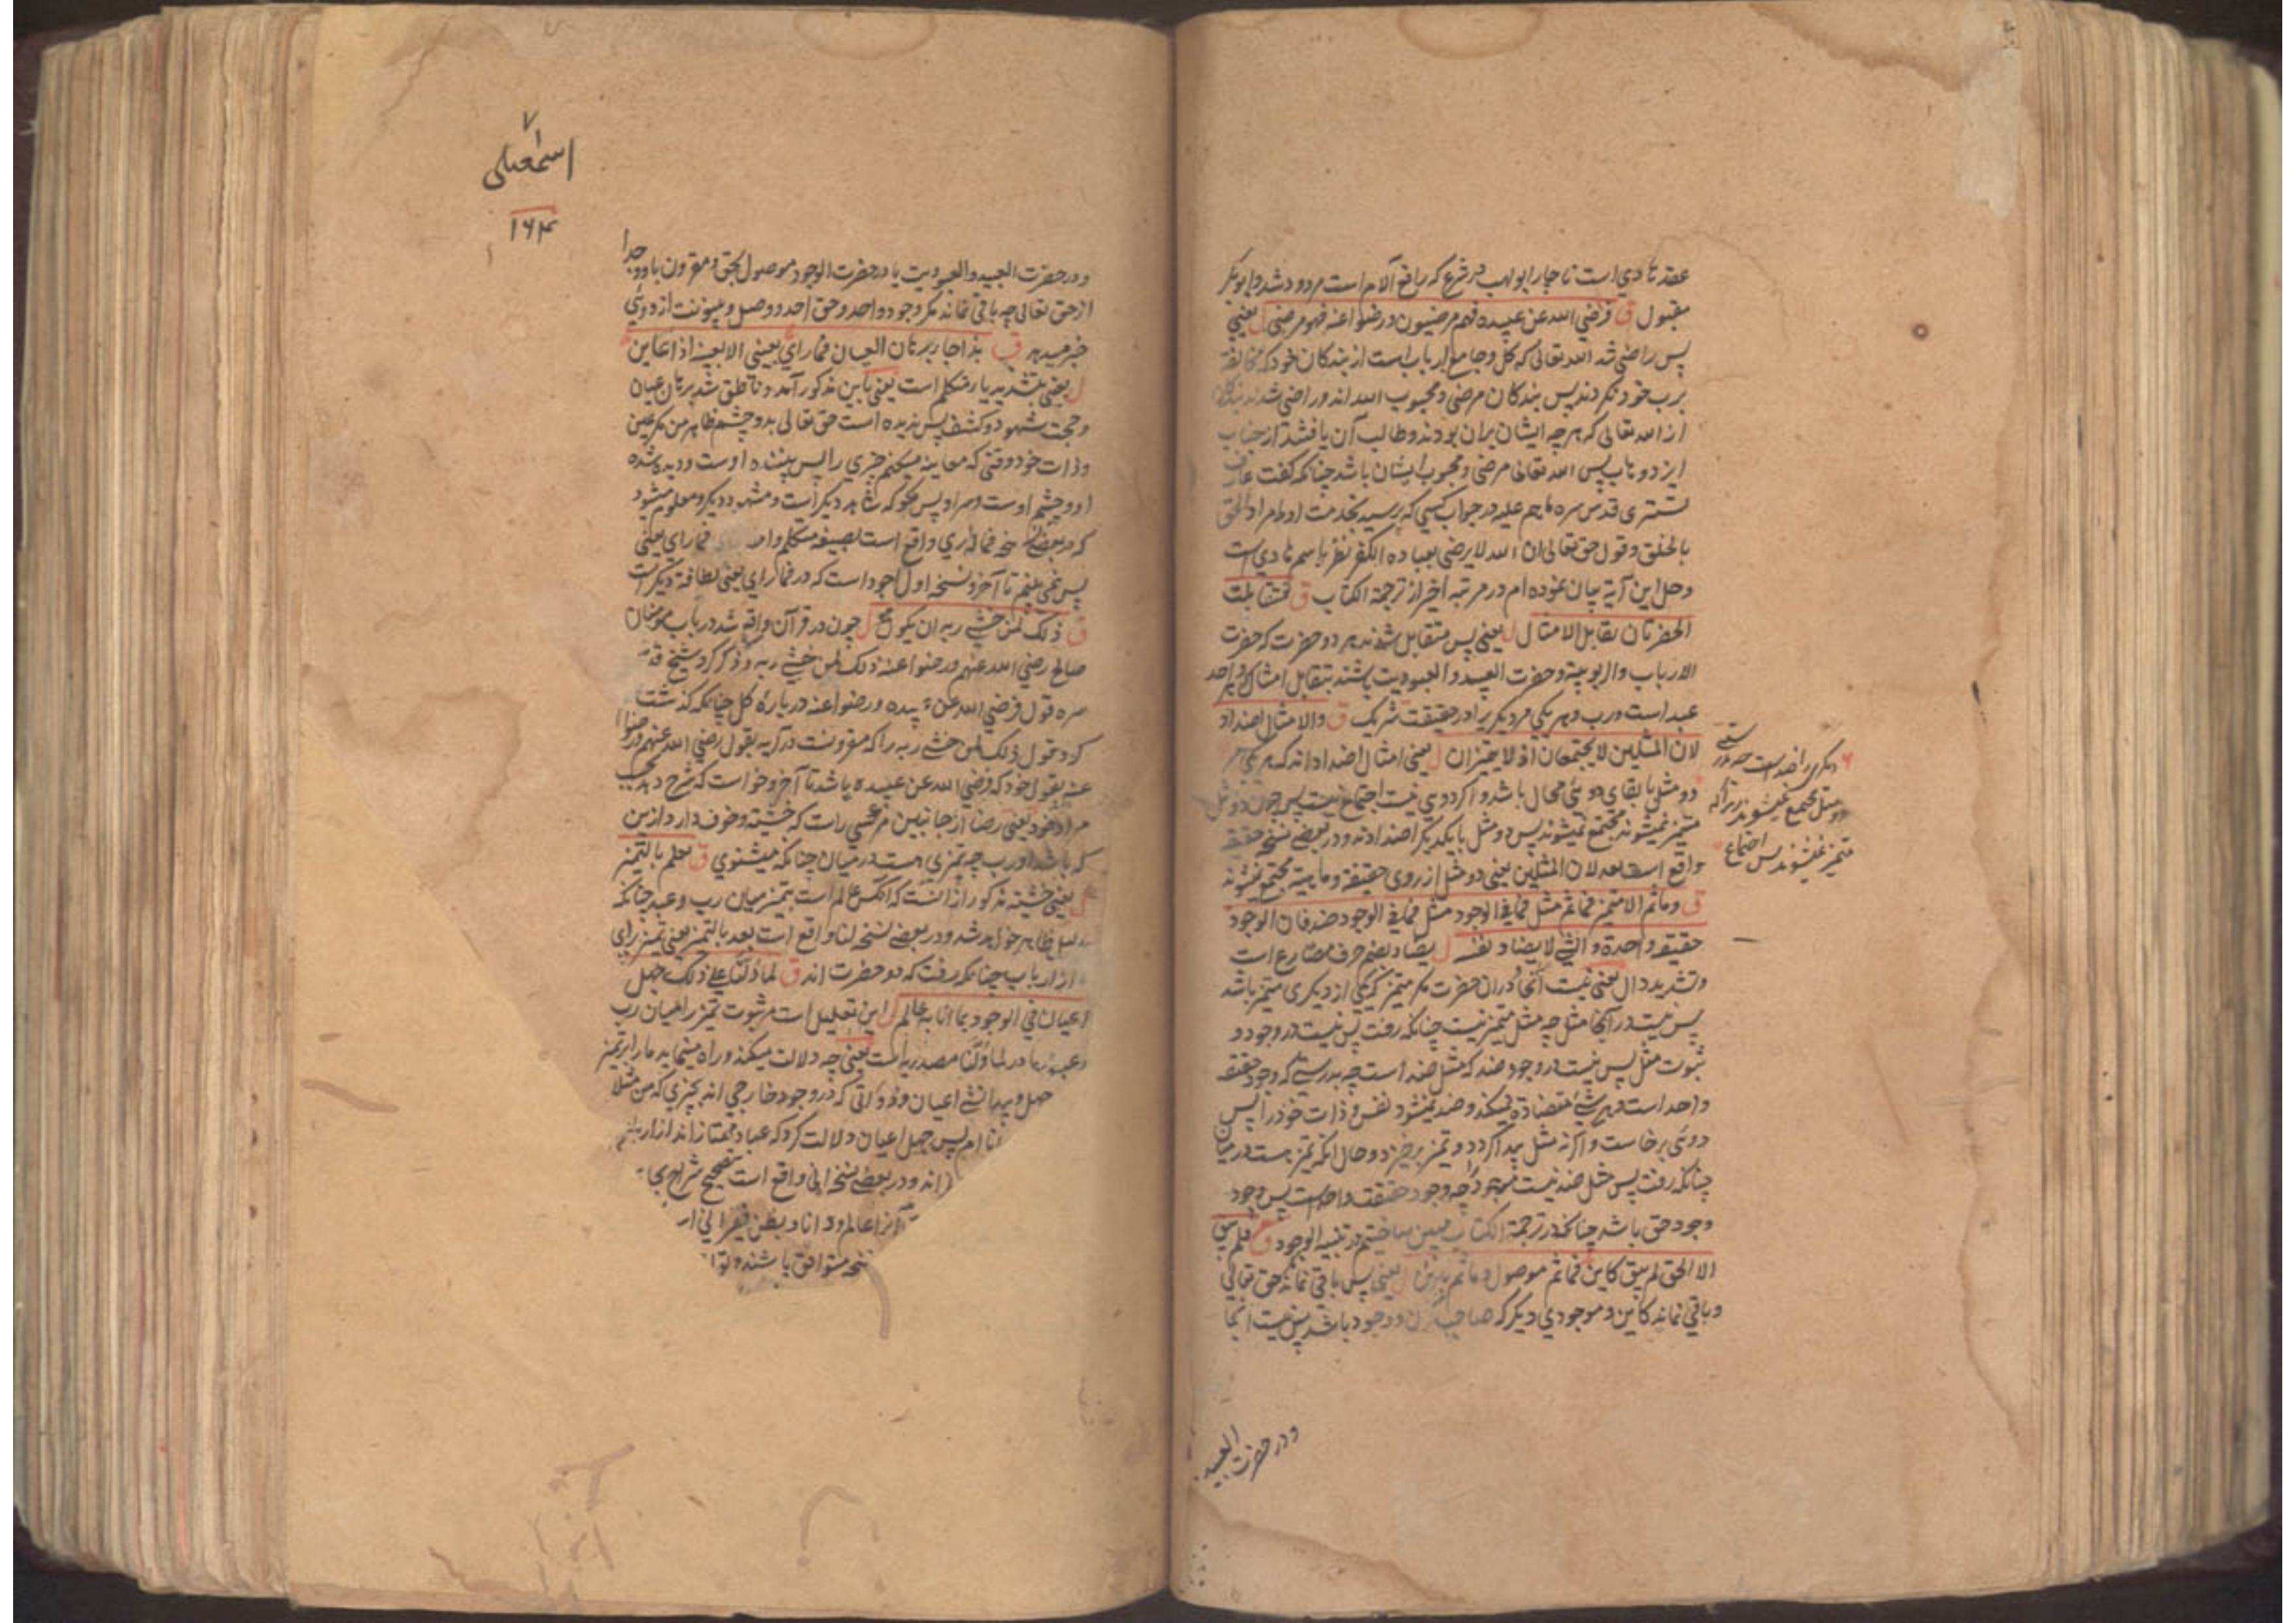 عقد هادی است ناچار ابولهب در شرع که رافع آلام است مردود شد و ابوبکر
مقبول ق فرضی الله عن عبیده فهم مرضیون و رضوا عنه فهو مرضی ل یعنی
پس راضی شد الله تعالی که کل و جامع ارباب است از بندگان خود که مخالفة
برب خود نکردند پس بندگان مرضی و محبوب الله اند و راضی شدند بندگان
از الله تعالی که هرچه ایشان بران بودند و طالب آن یافتند از جناب
ایزد وهاب پس الله تعالی مرضی و محبوب ایشان باشد چنانکه گفت عارف
تستری قدس سره در جواب کسی که پرسید بخدمت او مراد الحق
بالخلق و قول حق تعالی ان الله لا یرضی بعباده الکفر نظر باسم هادی است
و حل این آیة بیان نموده‌ام در مرتبه اخیر از ترجمة الکتاب ق فتقابلت
الحضرتان تقابل الامثال ل یعنی پس متقابل شدند هر دو حضرت که حضرت
الارباب والربوبیة و حضرت العبید و العبودیت باشند بتقابل امثال
عبد است و رب و هر یکی مر دیگریرا در حقیقت شریک ق والامثال اضداد
لان المثلین لا یجتمعان اذ لا یتمیزان ل یعنی امثال اضداد اند که هر یکی مر
دو مثل با بقای دوئی محال باشد و اگر دوئی نیست اجتماع نیست پس چون دو مثل
متمیز نمیشوند مجتمع نمیشوند پس دو مثل با یکدیگر اضدادند و در بعضی نسخ حقیقة
واقع است بعد لان المثلین یعنی دو مثل از روی حقیقة و ماهیة مجتمع نمیشوند
ق و ما ثم الا متمیز فما ثم مثل فما فی الوجود مثل فما فی الوجود ضد فان الوجود
حقیقة واحدة و الشئ لا یضاد نفسه ل یضاد بضم حرف مضارع است
و تشدید دال یعنی نیست آنجا در آن حضرت مگر متمیز که یکی از دیگری متمیز باشد
پس نیست در آنجا مثل چه مثل متمیز نیست چنانکه رفت پس نیست در وجود و
ثبوت مثل پس نیست در وجود ضد که مثل ضد است چه بدرستی که وجود حقیقة
واحد است و هر شئ مضادة نمیکند و ضد نمیشود نفس و ذات خود را پس
دوئی برخاست و اگرنه مثل پیدا گردد و تمیز برخیزد و حال آنکه تمیز هست در میان
چنانکه رفت پس مثل ضد نیست موجود چه وجود حقیقت واحد است پس وجود
وجود حق باشد چنانچه در ترجمة الکتاب مبین ساختیم در تنبیه الوجود ق فلم یبق
الا الحق لم یبق کاین فما ثم موصول و ما ثم باین ل یعنی پس باقی نماند حق تعالی
و باقی نماند کاین و موجودی دیگر که صاحب وجود باشد پس نیست آنجا
دیگری را ضد است چه بدرستی
دو مثل مجتمع نمیشوند زیراکه
متمیز نمیشوند پس اجتماع
و در حضرت العبید
۷
اسمعیلی
۱۶۴
و در حضرت العبید و العبودیت یا در حضرت الوجود موصول بحق و مقرون باو و جدا
از حق تعالی چه باقی نماند مگر وجود واحد و حق احد و وصل و بینونت از دوئی
خبر میدهد ق بذا جاء برهان العیان فما رای بعینی الا بعینه اذ اعاین
ل بعینی بتشدید یاء متکلم است یعنی باین مذکور آمد و ناطق شد برهان عیان
و حجت شهود و کشف پس ندیده است حق تعالی بدو چشم ظاهر من مگر عین
و ذات خود وقتی که معاینه میکنم چیزی را پس بیننده اوست و دیده شده
او و چشم اوست و سر او پس مگو که شاهد دیگر است و مشهود دیگر و معلوم میشود
که در بعضی نسخه فما اری واقع است بصیغه متکلم واحد فما رای یعنی
پس نمی بینم تا آخر و نسخه اول اجود است که در فما رای بعینی لطافة دیگر است
ق ذلک لمن خشی ربه ان یکون هو ل چون در قرآن واقع شد در باب مومنان
صالح رضی الله عنهم و رضوا عنه ذلک لمن خشی ربه و ذکر کرد شیخ قدس
سره قول فرضی الله عن عبیده و رضوا عنه درباره کل چنانکه گذشت
کرد قول ذلک لمن خشی ربه را که مقرونست در آیه بقول رضی الله عنهم و رضوا
عنه بقول خود که فرضی الله عن عبیده باشد تا آخر و خواست که شرح دهد بحسب
مراد خود یعنی رضا از جانبین مر کسی راست که خشیة و خوف دارد ازین
که باشد او رب چه تمیزی هست در میان چنانکه میشنوی ق لعلمه بالتمیز
ل یعنی خشیة مذکور از آنست که آنکس عالم است بتمیز میان رب و عبد چنانکه
دلیل ظاهر خواهد شد و در بعضی نسخه لنا واقع است بعد بالتمیز یعنی تمیز برای
از ارباب چنانکه رفت که دو حضرت اند ق لما دلنا علی ذلک جهل
اعیان فی الوجود بما اتی به عالم ل این تعلیل است مر ثبوت تمیز را میان رب
و عبد و ما در لما دلنا مصدریه است یعنی چه دلالت میکند و راه مینماید ما را بر تمیز
جهل و نادانی اعیان و ذواتی که در وجود خارجی اند بچیزی که من مثلا
دانا ام پس جهل اعیان دلالت کرد که عباد ممتازاند از ارباب
اند و در بعضی نسخ اتی واقع است بتصحیح شراح
آنرا عالم و دانا و بطن فقیر
نسخه متوافق باشند